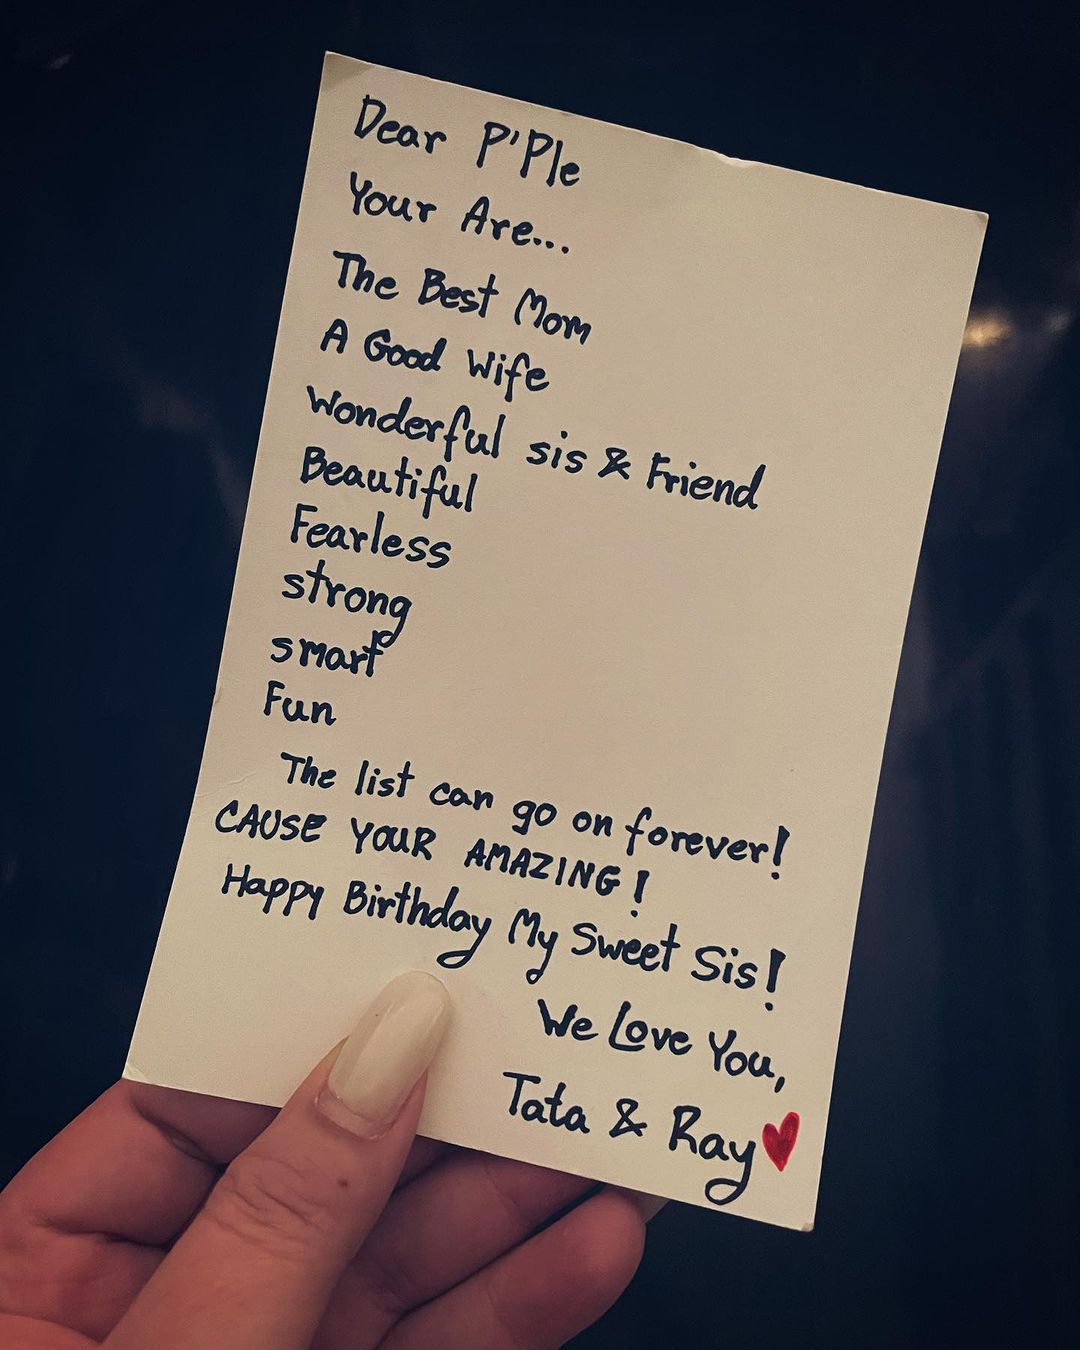 Dear P'Ple
Your Are...
The Best Mom
A Good Wife
Wonderful sis & Friend
Beautiful
Fearless
strong
smart
Fun
The list can go on forever!
CAUSE YOUR AMAZING!
Happy Birthday My Sweet Sis!
We Love You,
Tata & Ray